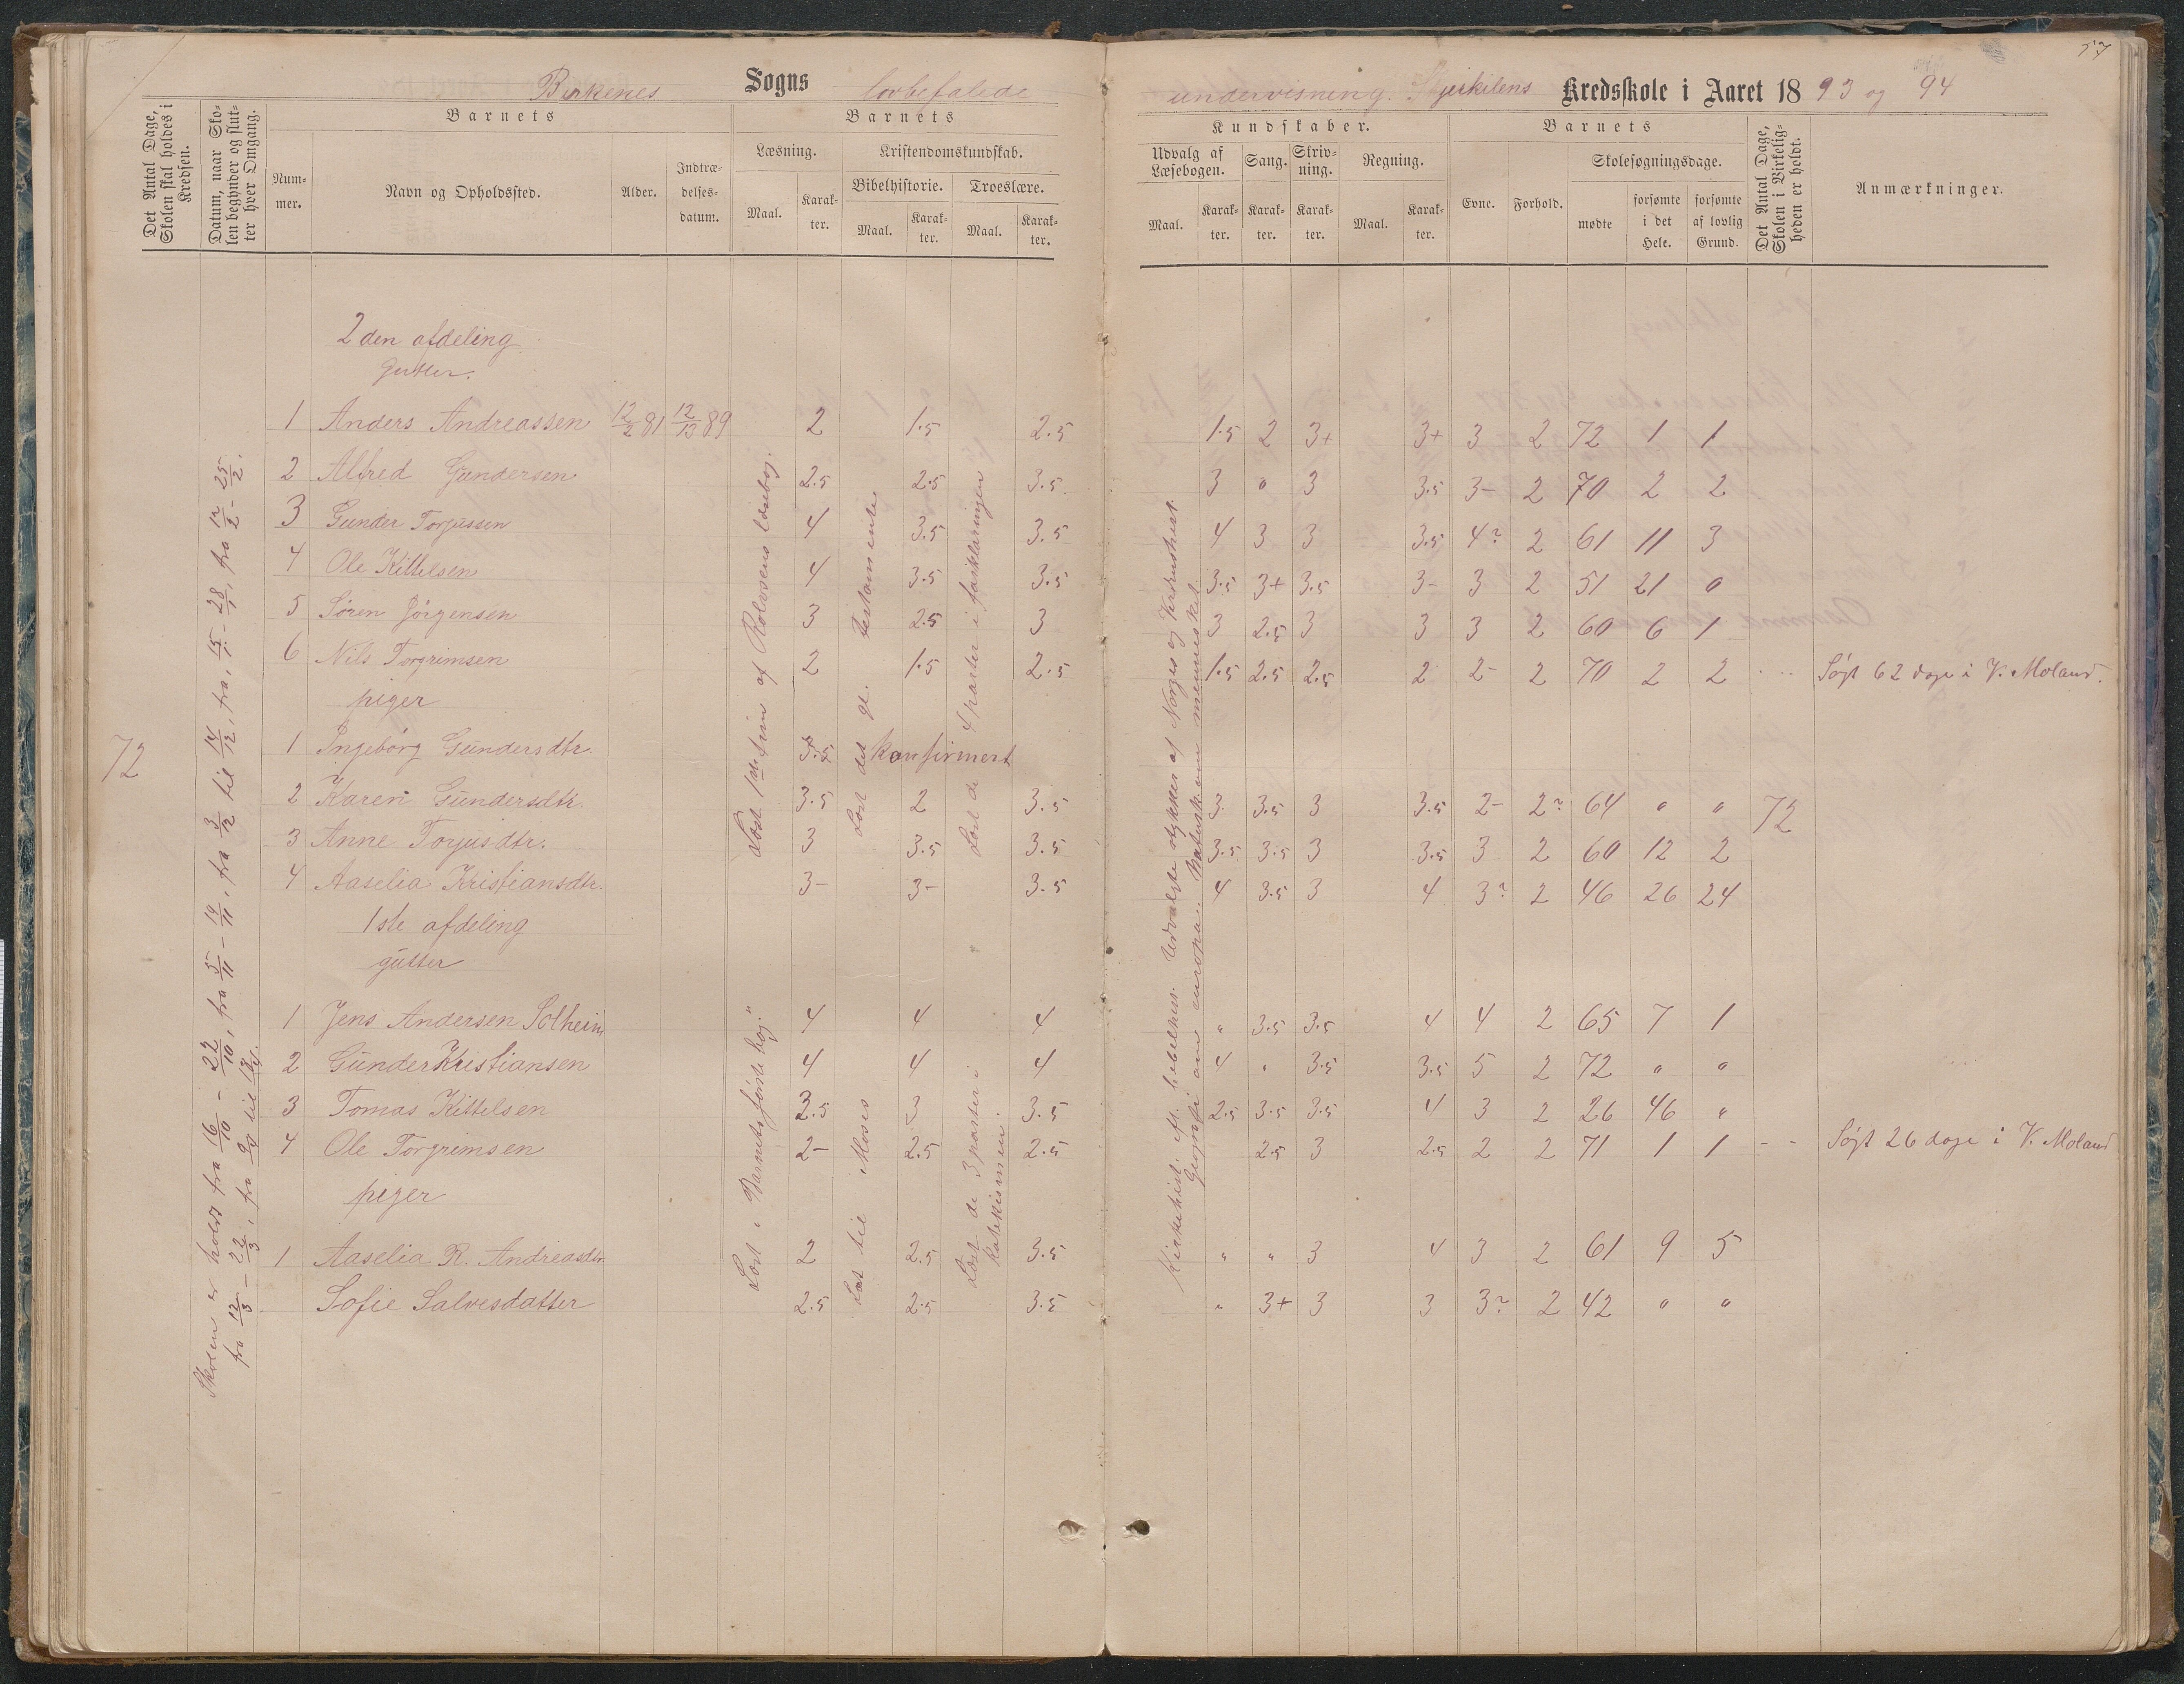 57
Birkenes Sogns lovbefalede undervisning. Kredsskole i Aaret 1893 og 94
Det Antal Dage, Skolen skal holdes i Kredsen.
Datum, naar Skolen begynder og slutter hver Omgang.
Barnets
Nummer.
Navn og Opholdssted.
Alder.
Indtrædelses-datum.
Barnets
Læsning.
Maal.
Karakter.
Kristendomskundskab.
Bibelhistorie.
Maal.
Karakter.
Troeslære.
Maal.
Karakter.
Kundskaber.
Udvalg af Læsebogen.
Maal.
Karakter.
Sang.
Karakter.
Skrivning.
Karakter.
Regning.
Maal.
Karakter.
Barnets
Evne.
Forhold.
Skolesøgningsdage.
mødte
forsømte i det Hele.
forsømte af lovlig Grund.
Det Antal Dage, Skolen i Virkeligheden er holdt.
Anmærkninger.
2den afdeling
Gutter.
1 Anders Andreassen 12/2 81 12/13 89 2 1.5 2.5 1.5 2 3+ 3+ 3 2 72 1 1
2 Alfred Gundersen 2.5 2.5 3.5. 3 " 3 3.5 3- 2 70 2 2
3 Gunder Torjussen 4 3.5 3.5 4 3 3 3.5 4? 2 61 11 3
4 Ole Kittelsen 4 3.5 3.5 3.5 3+ 3.5 3- 3 2 51 21 0
5 Søren Jörgensen 3 2.5 3 3 2.5 3 3 3 2 60 6 1
6 Nils Torgrimsen 2 1.5 2.5 1.5 2.5 2.5 2 2- 2 70 2 2 Søgt 62 dage i V. Moland.
piger
1 Ingebörg Gundersdtr. 3.5 konfirmert
2 Karen Gundersdtr. 3.5 2 3.5 3 3.5 3 3.5 2- 2? 64 " " 72
3 Anne Torjusdtr. 3 3.5 3.5 3.5 3.5 3 3.5 3 2 60 12 2
4 Aaselia Kristiansdtr. 3- 3- 3.5 4 3.5 3 4 3? 2 46 26 24
1ste afdeling
gutter
1 Jens Andersen Solheim 4 4 4 " 3.5 3.5 4 4 2 65 7 1
2 Gunder Kristiansen 4 4 4 4 " 3.5 3.5 5 2 72 " "
3 Tomas Kittelsen 3.5 3 3.5 2.5 3.5 3.5 4 3 2 26 46 "
4 Ole Torgrimsen 2- 2.5 2.5 2.5 3 2.5 2 2 71 1 1 -- Søgt 26 dage i V. Moland
piger
1 Aaselia R. Andreasdtr. 2 2.5 3.5 " " 3 4 3 2 61 9 5
Sofie Salvesdatter 2.5 2.5 3.5 " 3+ 3 3 3? 2 42 " "
72
Skolen er holdt fra 16/10 - 22/10, fra 5/11 - 19/11, fra 3/12 til 14/12, fra 15/1 - 28/1, fra 12/2 - 25/2.
fra 12/3 - 22/3, fra 9/4 til
Læst 1ste trin af Rolvsens læsebog.
Læst det ge. testamente
Læst de 4 parter i forklaringen
Læst i "Barnets første bog."
Læst til Moses
Læst de 3 parter i katekismen.
Kirkehist. eft. bibelhis. Udvalgte stykker af Norges og Verdenshist.
Geografi om europa. Naturk. om mennesket.